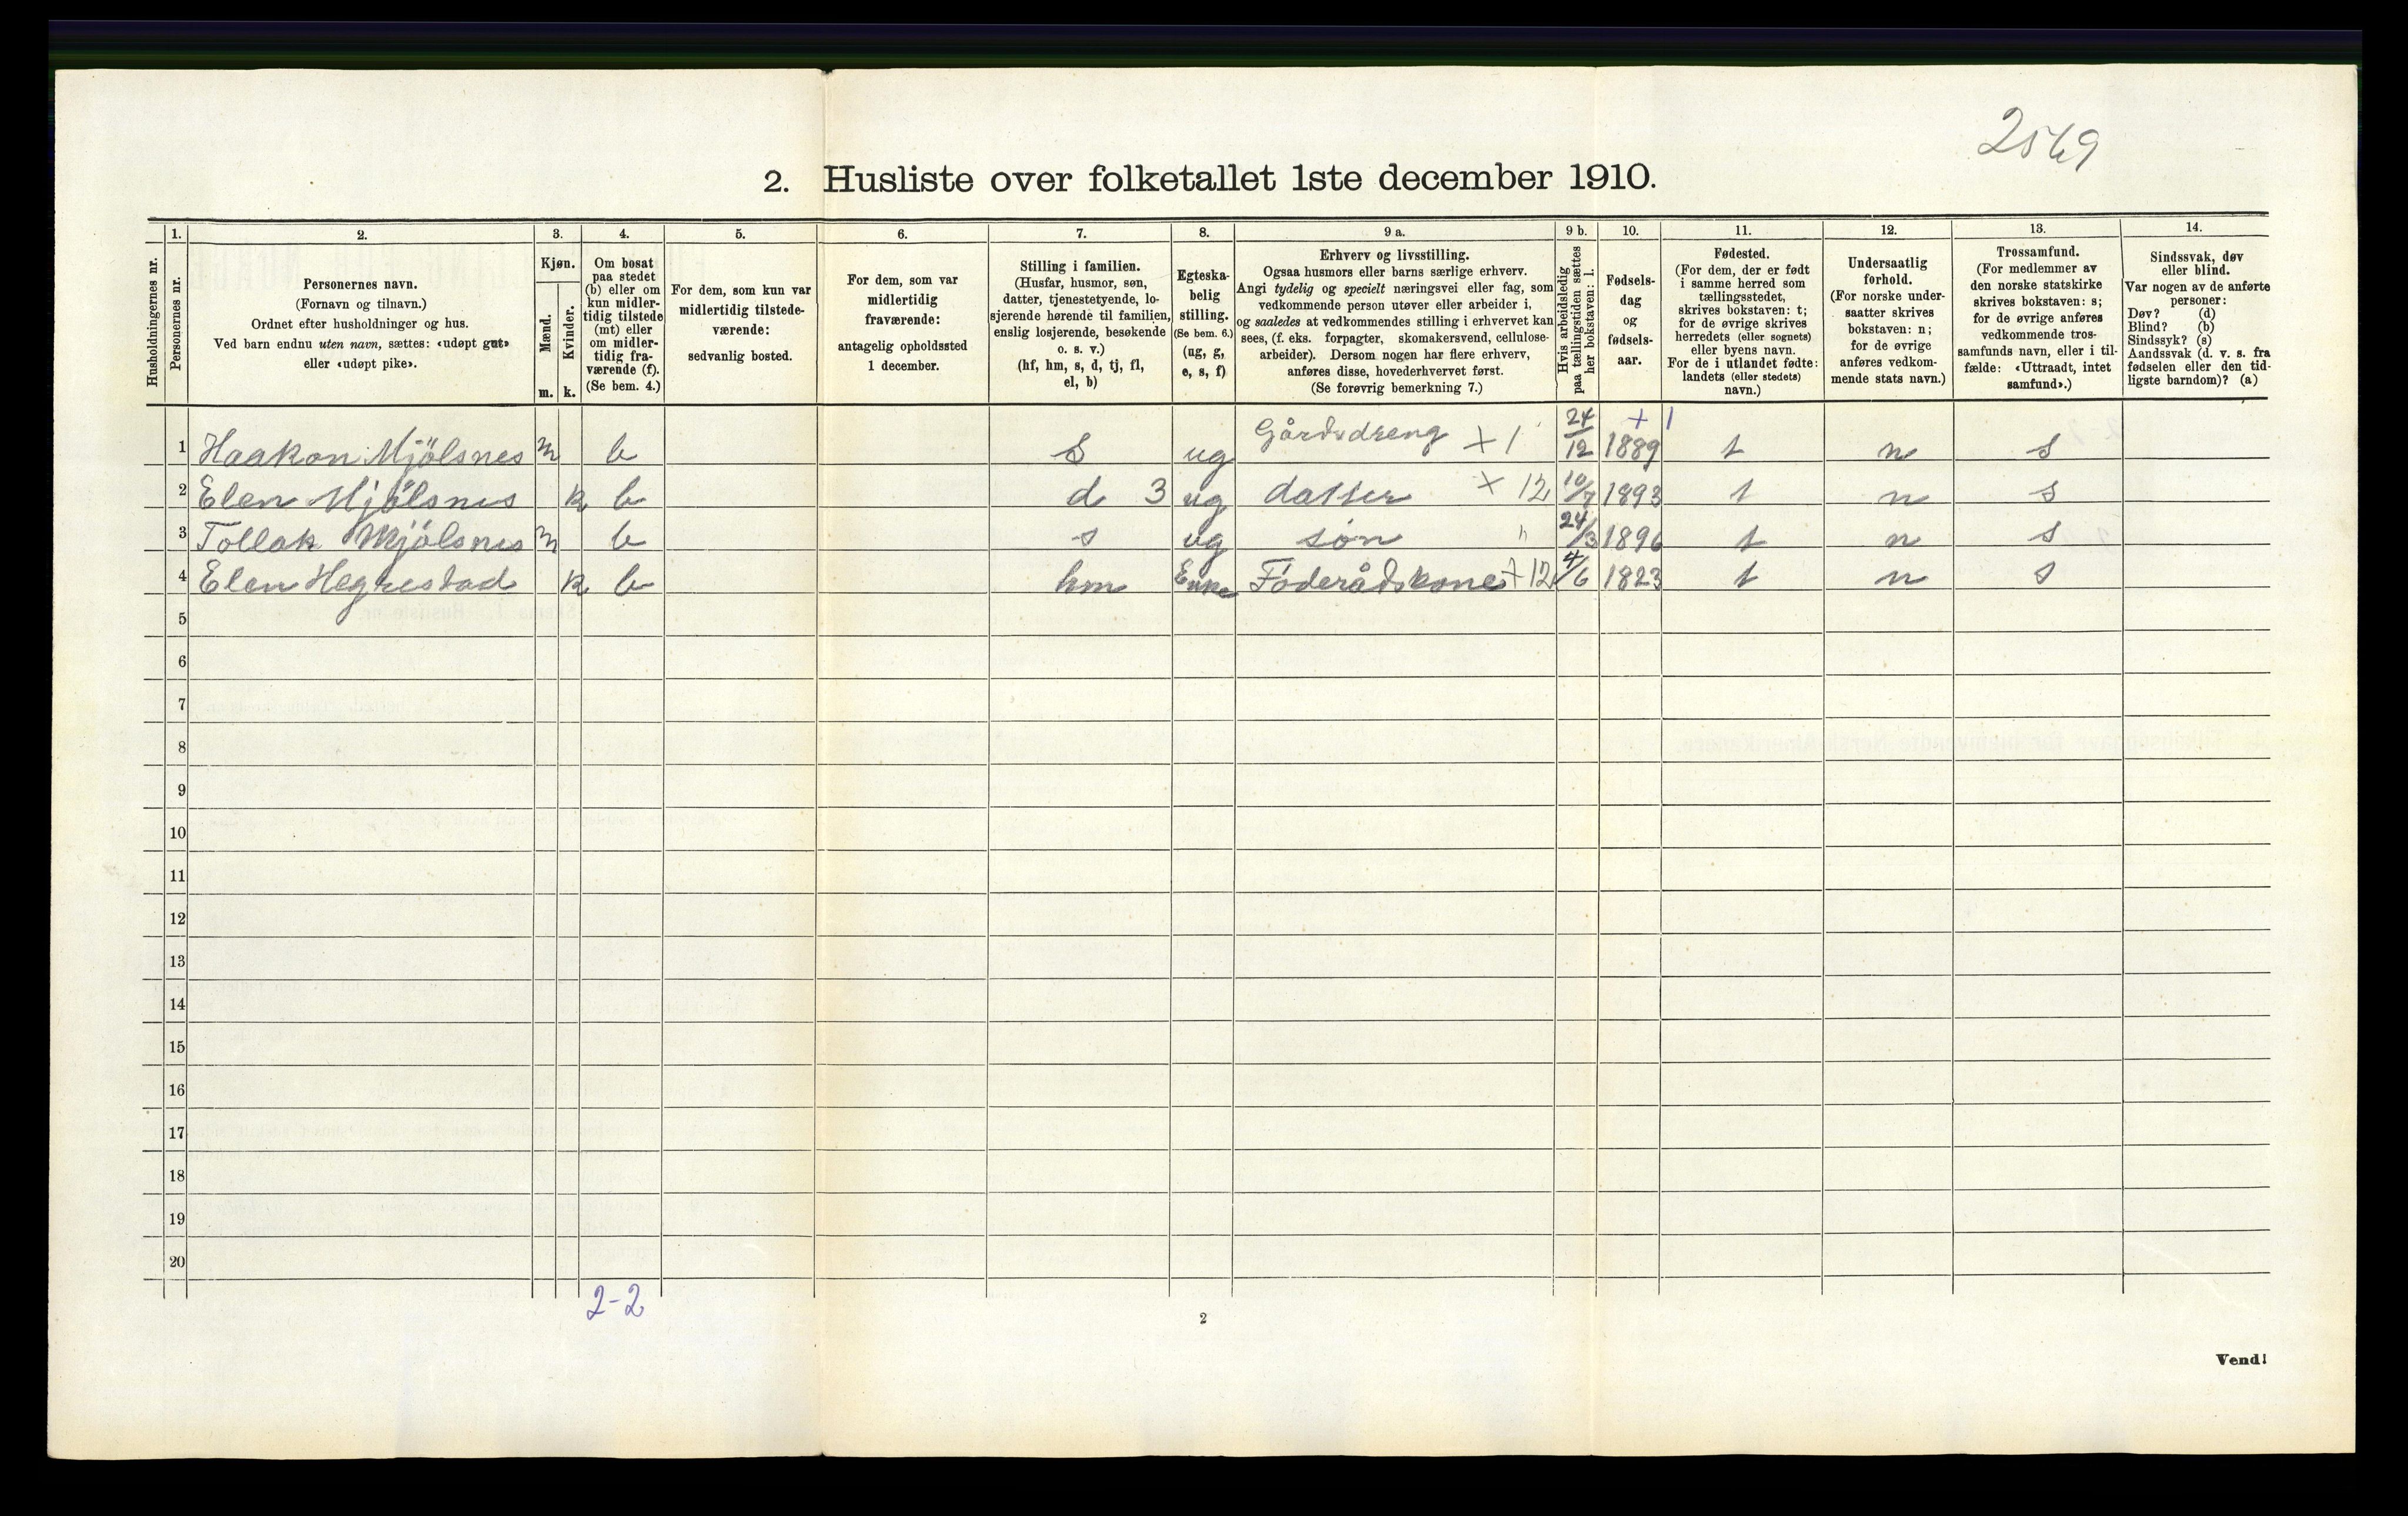 2569
2. Husliste over folketallet 1ste december 1910.
1. 2. 3. 4. 5. 6. 7. 8. 9 a. 9 b. 10. 11. 12. 13. 14.
Husholdningernes nr.
Personernes nr.
Personernes navn.
(Fornavn og tilnavn.)
Ordnet efter husholdninger og hus.
Ved barn endnu uten navn, sættes: «udøpt gut»
eller «udøpt pike».
Kjøn.
Mænd.
Kvinder.
m. k.
Om bosat
paa stedet
(b) eller om
kun midler-
tidig tilstede
(mt) eller
om midler-
tidig fra-
værende (f).
(Se bem. 4.)
For dem, som kun var
midlertidig tilstede-
værende:
sedvanlig bosted.
For dem, som var
midlertidig
fraværende:
antagelig opholdssted
1 december.
Stilling i familien.
(Husfar, husmor, søn,
datter, tjenestetyende, lo-
sjerende hørende til familien,
enslig losjerende, besøkende
o. s. v.)
(hf, hm, s, d, tj, fl,
el, b)
Egteska-
belig
stilling.
(Se bem. 6.)
(ug, g,
e, s, f)
Erhverv og livsstilling.
Ogsaa husmors eller barns særlige erhverv.
Angi tydelig og specielt næringsvei eller fag, som
vedkommende person utøver eller arbeider i,
og saaledes at vedkommendes stilling i erhvervet kan
sees, (f. eks. forpagter, skomakersvend, cellulose-
arbeider). Dersom nogen har flere erhverv,
anføres disse, hovederhvervet først.
(Se forøvrig bemerkning 7.)
Hvis arbeidsledig
paa tællingstiden sættes
her bokstaven: l.
Fødsels-
dag
og
fødsels-
aar.
Fødested.
(For dem, der er født
i samme herred som
tællingsstedet,
skrives bokstaven: t;
for de øvrige skrives
herredets (eller sognets)
eller byens navn.
For de i utlandet fødte:
landets (eller stedets)
navn.)
Undersaatlig
forhold.
(For norske under-
saatter skrives
bokstaven: n;
for de øvrige
anføres vedkom-
mende stats navn.)
Trossamfund.
(For medlemmer av
den norske statskirke
skrives bokstaven: s;
for de øvrige anføres
vedkommende tros-
samfunds navn, eller i til-
fælde: «Uttraadt, intet
samfund».)
Sindssvak, døv
eller blind.
Var nogen av de anførte
personer:
Døv? (d)
Blind? (b)
Sindssyk? (s)
Aandssvak (d. v. s. fra
fødselen eller den tid-
ligste barndom)? (a)
+ 1
1 Haakon Mjölsnes m b S ug Gårdsdreng + 1 24/12 1889 t n s
2 Elen Mjölsnes k b d 3 ug datter + 12 10/7 1893 t n s
3 Tollak Mjölsnes m b s ug søn " 24/3 1896 t n s
4 Elen Hegrestad k b hm Enke Föderådskone + 12 4/6 1823 t n s
5
6
7
8
9
10
11
12
13
14
15
16
17
18
19
20
2-2
2
Vend!